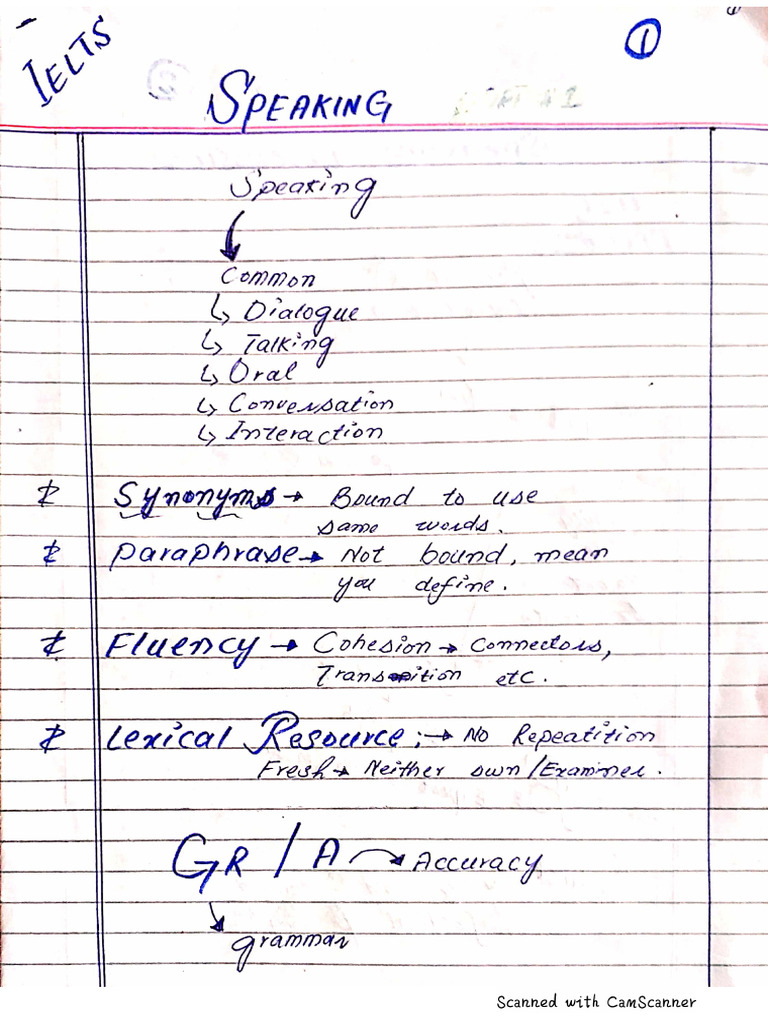 IELTS
1
SPEAKING
Speaking
Common
↳ Dialogue
↳ Talking
↳ Oral
↳ Conversation
↳ Interaction
Synonyms → Bound to use
same words.
Paraphrase → Not bound, mean
you define.
Fluency → Cohesion → Connectors,
Transition etc.
Lexical Resource :→ No Repeatition
Fresh → Neither own/Examiner.
GR / A → Accuracy
grammar
Scanned with CamScanner